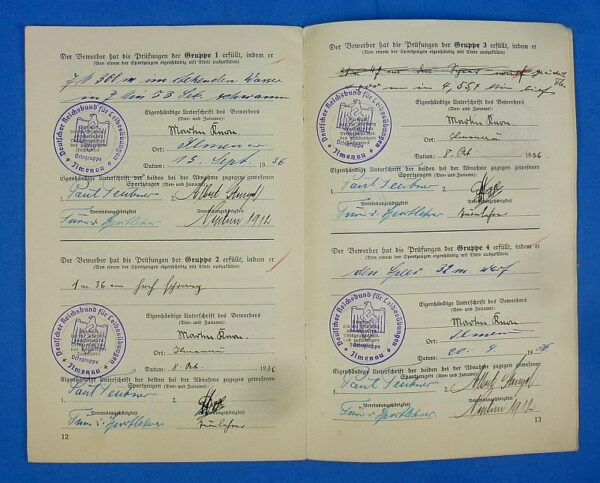 Der Bewerber hat die Prüfungen der Gruppe 1 erfüllt, indem er
(Von einem der Sportzeugen eigenhändig mit Tinte auszufüllen)
300 m im stehenden Wasser
in 7 Min 53 Sek. schwamm
Eigenhändige Unterschrift des Bewerbers
(Vor- und Zuname):
Martin Knon
Ort: Ilmenau
Datum: 13. Sept. 1936
Eigenhändige Unterschrift der beiden bei der Abnahme zugegen gewesenen
Sportzeugen (Vor- und Zuname):
1. Paul Teubner 2. Albert
Vereinszugehörigkeit Vereinszugehörigkeit
Turn u. Sportlehrer Neptun 1912
Deutscher Reichsbund für Leibesübungen
Ortsgruppe
Ilmenau
Der Bewerber hat die Prüfungen der Gruppe 2 erfüllt, indem er
(Von einem der Sportzeugen eigenhändig mit Tinte auszufüllen)
1 m 36 cm hoch sprang
Eigenhändige Unterschrift des Bewerbers
(Vor- und Zuname):
Martin Knon.
Ort: Ilmenau
Datum: 8. Okt. 1936
Eigenhändige Unterschrift der beiden bei der Abnahme zugegen gewesenen
Sportzeugen (Vor- und Zuname):
1. Paul Teubner 2.
Vereinszugehörigkeit
Turn u. Sportlehrer
Deutscher Reichsbund für Leibesübungen
Ortsgruppe
Ilmenau
12
Der Bewerber hat die Prüfungen der Gruppe 3 erfüllt, indem er
(Von einem der Sportzeugen eigenhändig mit Tinte auszufüllen)
m in 4,55 Min lief
Eigenhändige Unterschrift des Bewerbers
(Vor- und Zuname):
Martin Knon
Ort: Ilmenau
Datum: 8. Okt. 1936
Eigenhändige Unterschrift der beiden bei der Abnahme zugegen gewesenen
Sportzeugen (Vor- und Zuname):
1. Paul Teubner 2.
Vereinszugehörigkeit
Turn u. Sportlehrer
Deutscher Reichsbund für Leibesübungen
Ortsgruppe
Ilmenau
Der Bewerber hat die Prüfungen der Gruppe 4 erfüllt, indem er
(Von einem der Sportzeugen eigenhändig mit Tinte auszufüllen)
den Speer 32 m warf
Eigenhändige Unterschrift des Bewerbers
(Vor- und Zuname):
Martin Knon
Ort: Ilmenau
Datum: 20. 9. 1936
Eigenhändige Unterschrift der beiden bei der Abnahme zugegen gewesenen
Sportzeugen (Vor- und Zuname):
1. Paul Teubner 2. Albert
Vereinszugehörigkeit Vereinszugehörigkeit
Turn u. Sportlehrer Neptun 1912
Deutscher Reichsbund für Leibesübungen
Ortsgruppe
Ilmenau
13